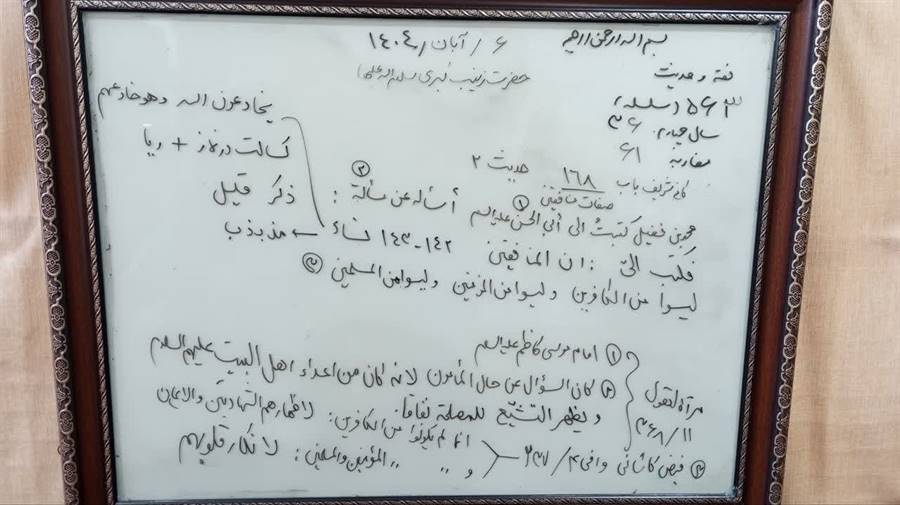 بسم الله الرحمن الرحیم
۶/آبان/۱۴۰۴
حضرت زینب کبری سلام الله علیها
فقه و حدیث
۵۶۳ (سلسله)
سال چهارم: ۳۶
مقارنه ۶۱
کافی شریف باب ۱۶۸ حدیث ۲
صفات منافقین
محمد بن فضیل کتبتُ الی أبی الحسن علیه السلام ① أسأله عن مسألة ②:
فکتب الیّ: ان المنافقین ۱۴۲-۱۴۳ نساء
یخادعون الله و هو خادعهم
کسالت در نماز + ریا
ذکر قلیل
مذبذب
لیسوا من الکافرین و لیسوا من المؤمنین و لیسوا من المسلمین ③
مرآة العقول
۱۱/۳۶۸
① امام موسی کاظم علیه السلام
② کان السؤال عن حال المأمون لانه کان من اعداء اهل البیت علیهم السلام
و یظهر التشیّع للمصلحة نفاقا.
③ فیض کاشانی وافی ۴/۲۳۷
انهم لم یکونوا من الکافرین: لاظهارهم الشهادتین والایمان
و " " المؤمنین والمسلمین: لانکار قلوبهم